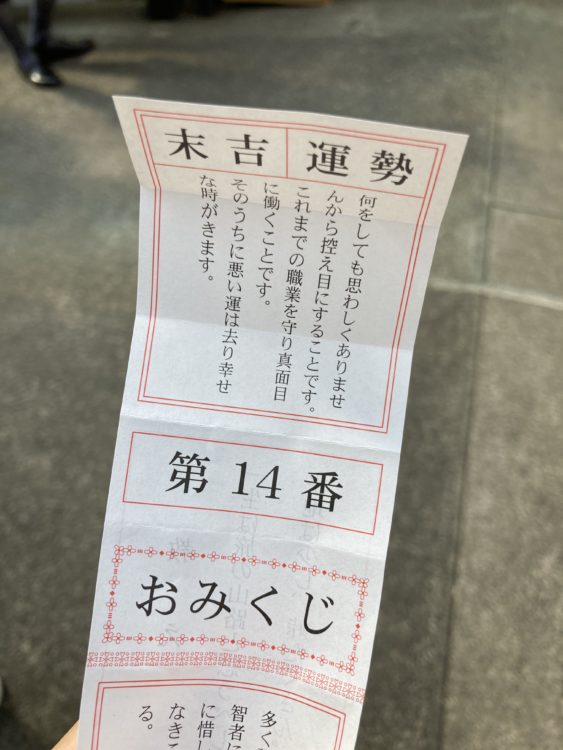 運勢
末吉
何をしても思わしくありませ
んから控え目にすることです。
これまでの職業を守り真面目
に働くことです。
そのうちに悪い運は去り幸せ
な時がきます。
第14番
おみくじ
多く
智者に
に惜し
なきこ
る。